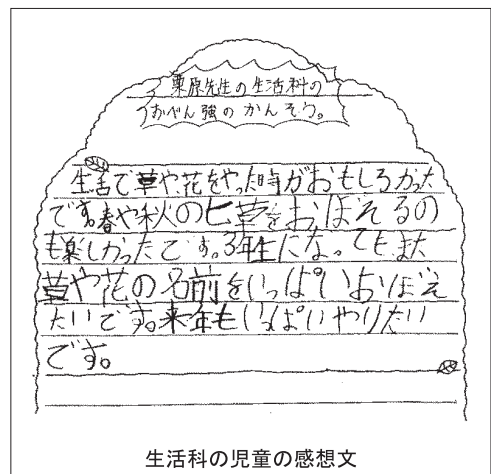 栗原先生の生活科の
おべん強のかんそう。
生活で草や花をやった時がおもしろかった
です。春や秋の七草をおぼえるの
も楽しかったです。3年生になってもまた
草や花の名前をいっぱいおぼえ
たいです。来年もいっぱいやりたい
です。
生活科の児童の感想文